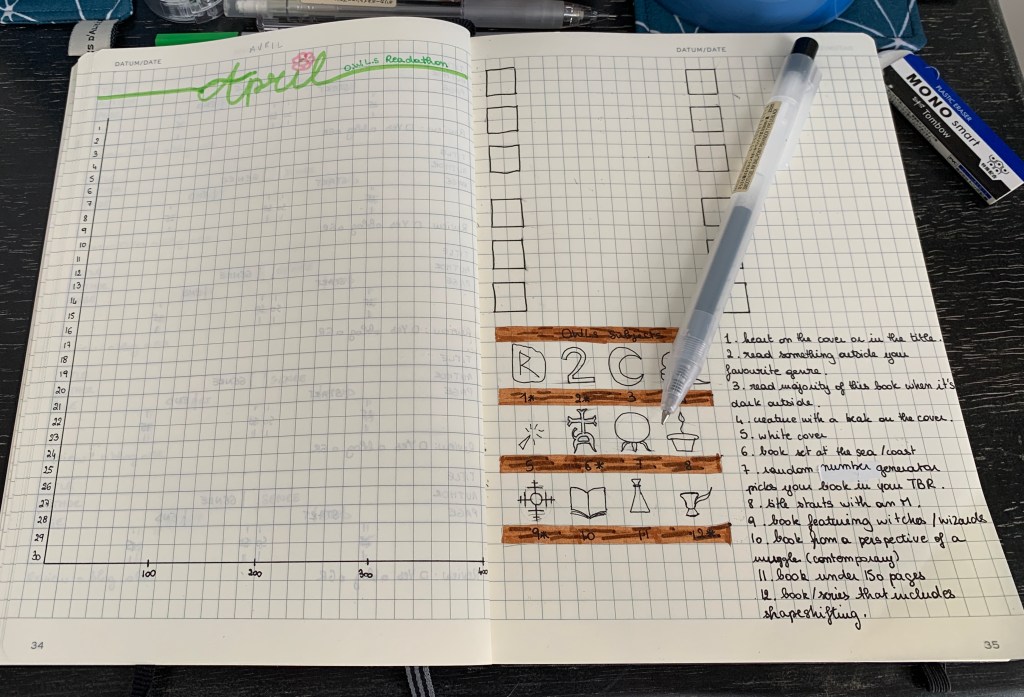 AVRIL
DATUM/DATE
April
O.W.L.s Readathon
1
2
3
4
5
6
7
8
9
10
11
12
13
14
15
16
17
18
19
20
21
22
23
24
25
26
27
28
29
30
100
200
300
400
34
DATUM/DATE
O.W.L.s subjects
R 2 C
1* 2* 3
5 6* 7 8
9* 10 11 12*
1. heart on the cover or in the title.
2. read something outside your
favourite genre.
3. read majority of this book when it's
dark outside.
4. creature with a beak on the cover.
5. white cover
6. book set at the sea/coast
7. random number generator
picks your book in your TBR.
8. title starts with an M.
9. book featuring witches/wizards
10. book from a perspective of a
muggle (contemporary)
11. book under 150 pages
12. book/series that includes
shapeshifting.
35
PLASTIC ERASER
MONO smart
by Tombow